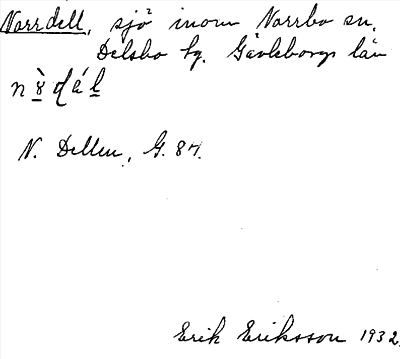 Norrdell, sjö inom Norrbo sn,
Delsbo tg. Gävleborgs län
N. Dellen, G. 87.
Erik Eriksson 1932.